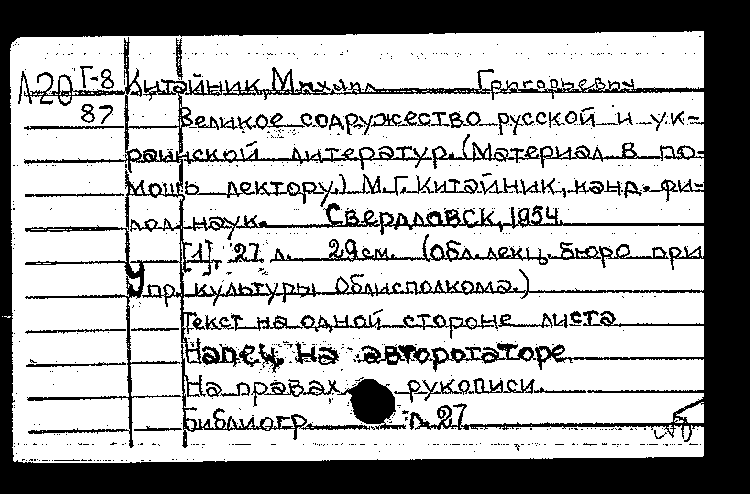 А20 Г-8 Китайник, Михаил Григорьевич
87 Великое содружество русской и ук-
раинской литератур. (Материал в по-
мощь лектору.) М.Г. Китайник, канд. фи-
лол. наук. Свердловск, 1954.
[1], 27 л. 29см. (Обл. лекц. бюро при
Упр. культуры Облисполкома.)
Текст на одной стороне листа
Напеч. на авторотаторе.
На правах рукописи.
Библиогр. л. 27.